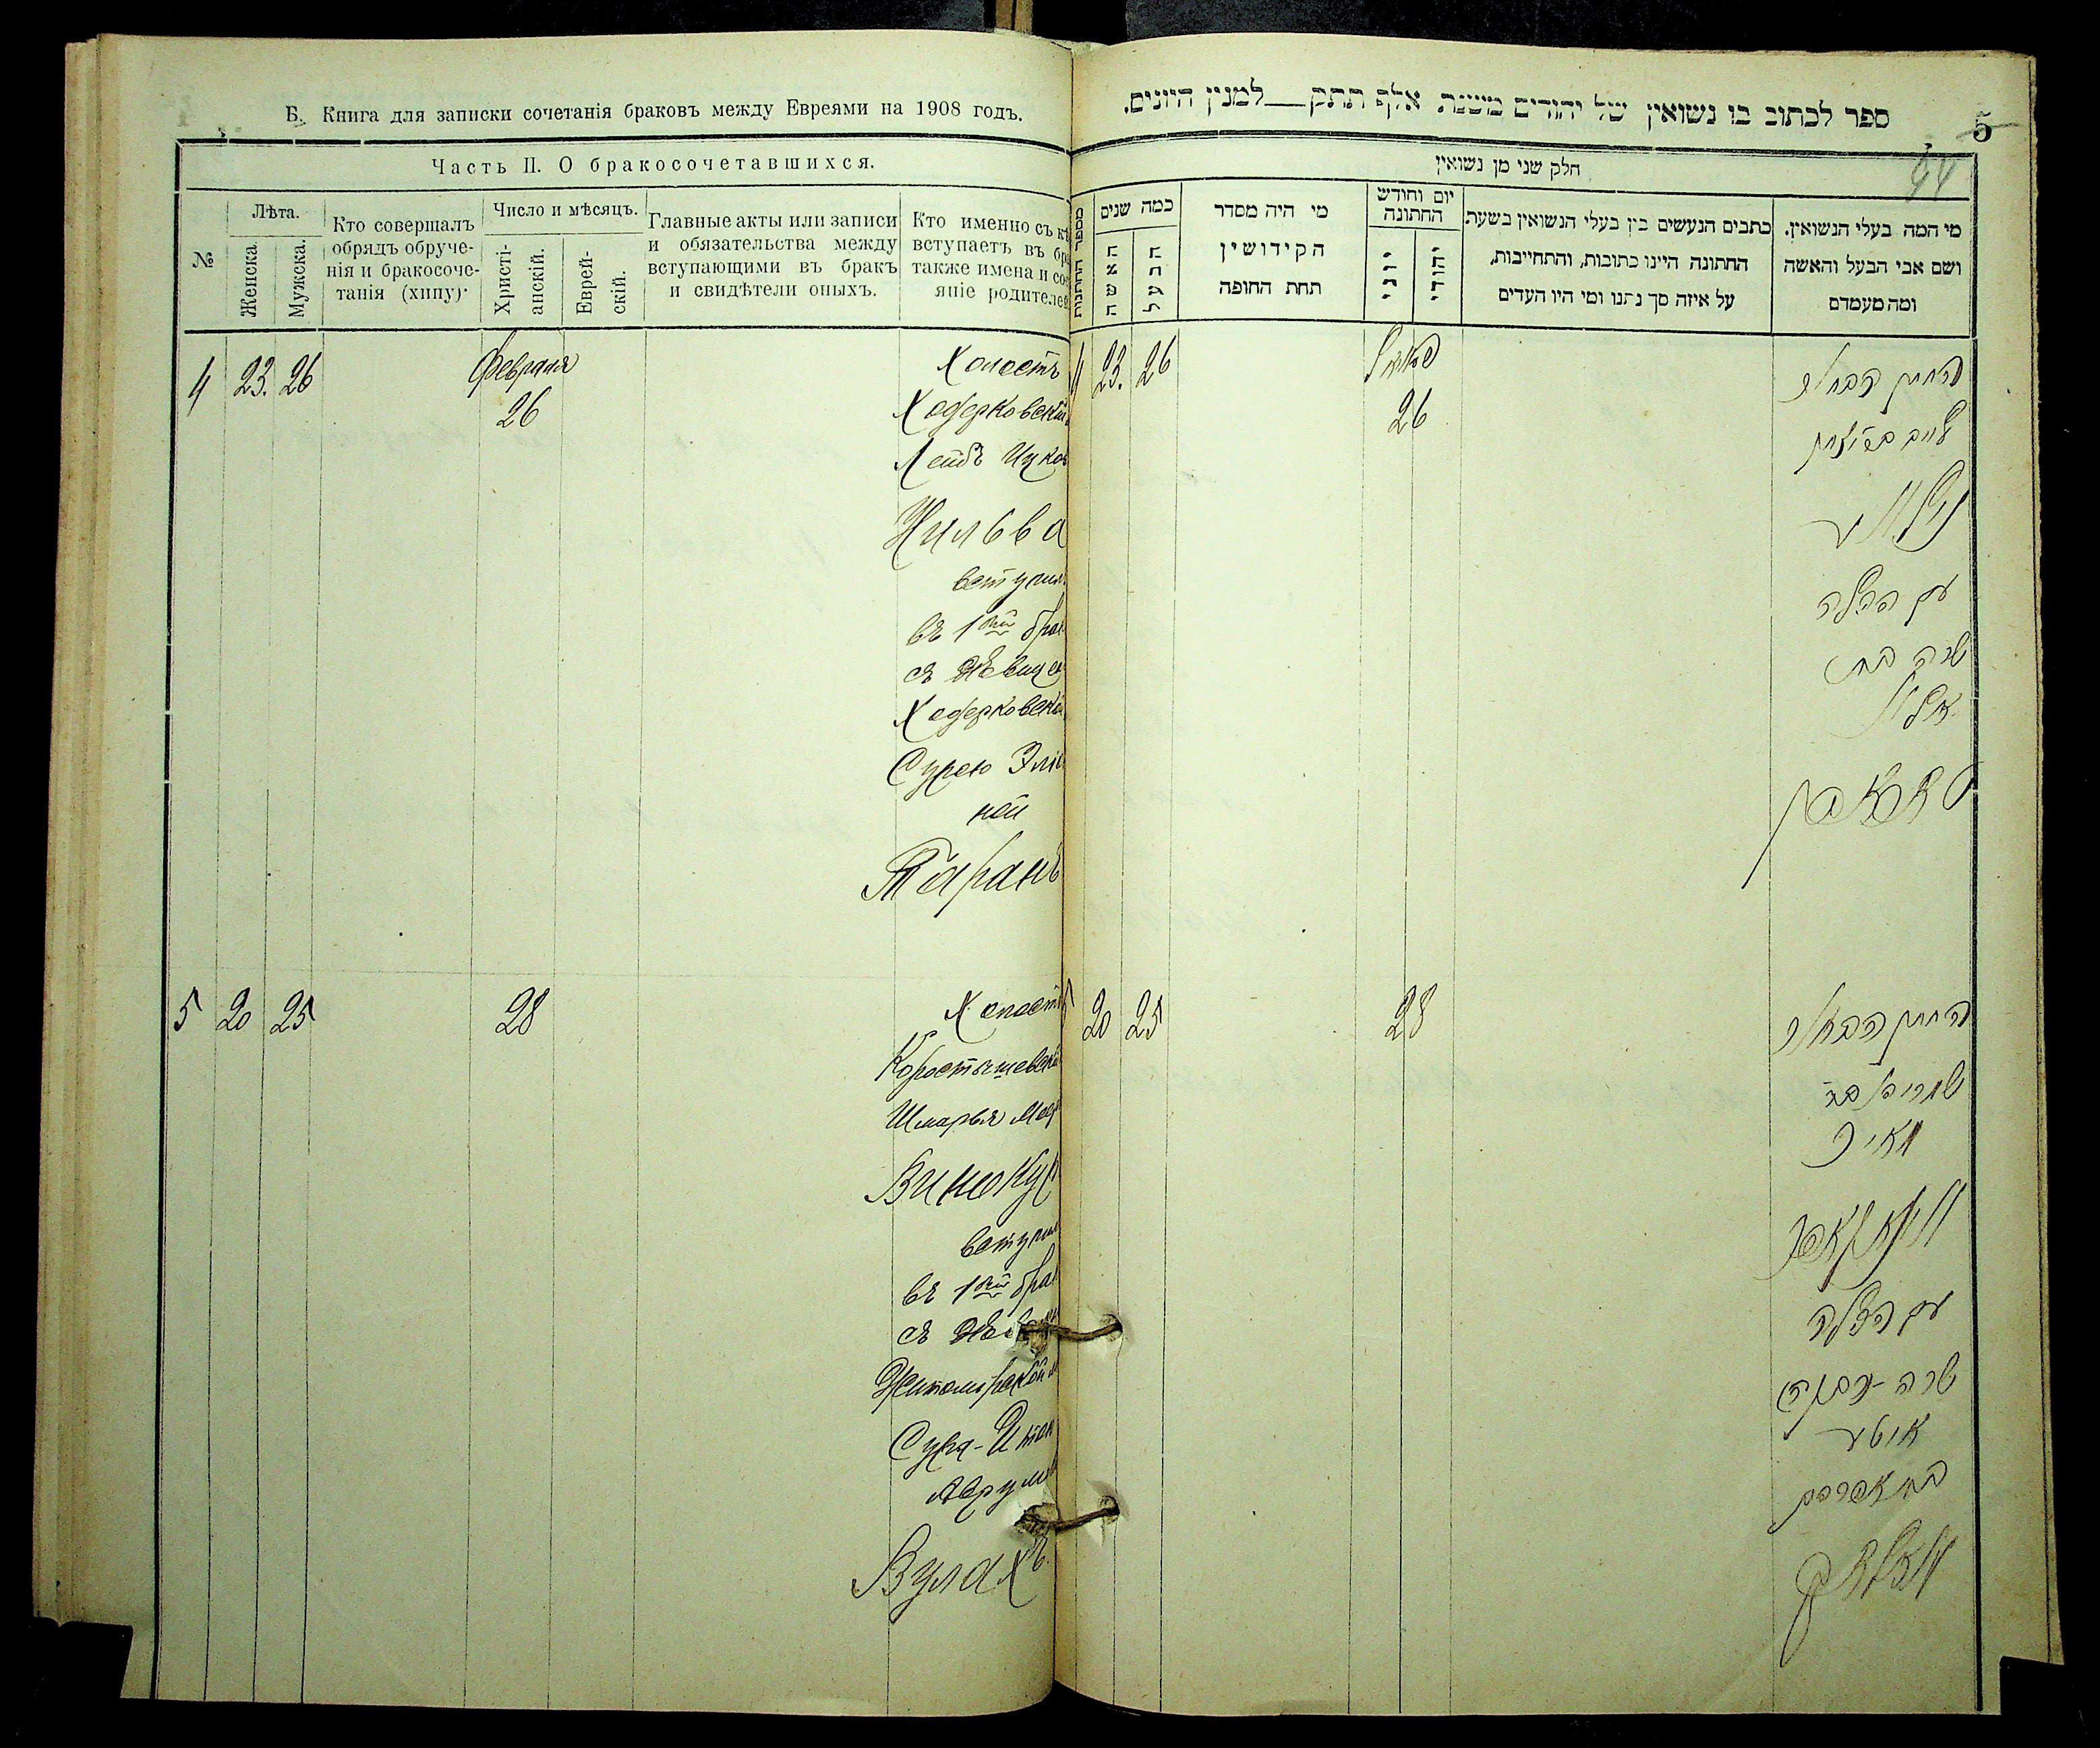 Б. Книга для записки сочетанія браковъ между Евреями на 1908 годъ.
Часть II. О бракосочетавшихся.
№
Лѣта.
Женска.
Мужска.
Кто совершалъ
обрядъ обруче-
нія и бракосоче-
танія (хипу).
Число и мѣсяцъ.
Христі-
анскій.
Еврей-
скій.
Главные акты или записи
и обязательства между
вступающими въ бракъ
и свидѣтели оныхъ.
Кто именно съ
вступаетъ въ
также имена и
яніе родителей
4 23. 26
Февраля
26
Холостъ
Ходорковскій
Лейбъ Ицков
Нилъва
вступил
въ 1ый брак
съ дѣвицею
Ходорковской
Сурею Элio
ной
Таранъ
5 20 25 28
Холостъ
Коростышевскій
Шмарья Меер
Винокур
вступил
въ 1ый брак
съ
Житомірской
Сура-
Аврумов
Вулахъ.
ספר לכתוב בו נשואין של יהודים משנת אלף תתק למנין היונים.
5
44
חלק שני מן נשואין
מספר החתונות
כמה שנים
האשה
הבעל
מי היה מסדר
הקידושין
תחת החופה
יום וחודש
החתונה
יוני
יהודי
כתבים הנעשים בין בעלי הנשואין בשעת
החתונה היינו כתובות, והתחייבות,
על איזה סך נתנו ומי היו העדים
מי המה בעלי הנשואין.
ושם אבי הבעל והאשה
ומה מעמדם
4 23. 26
26
החתן הבחור
לייב
עם הכלה
שרה בת
5 20 25 28
החתן הבחור
מאיר
ווינאקור
עם הכלה
שרה
בת אברהם
וואלאך